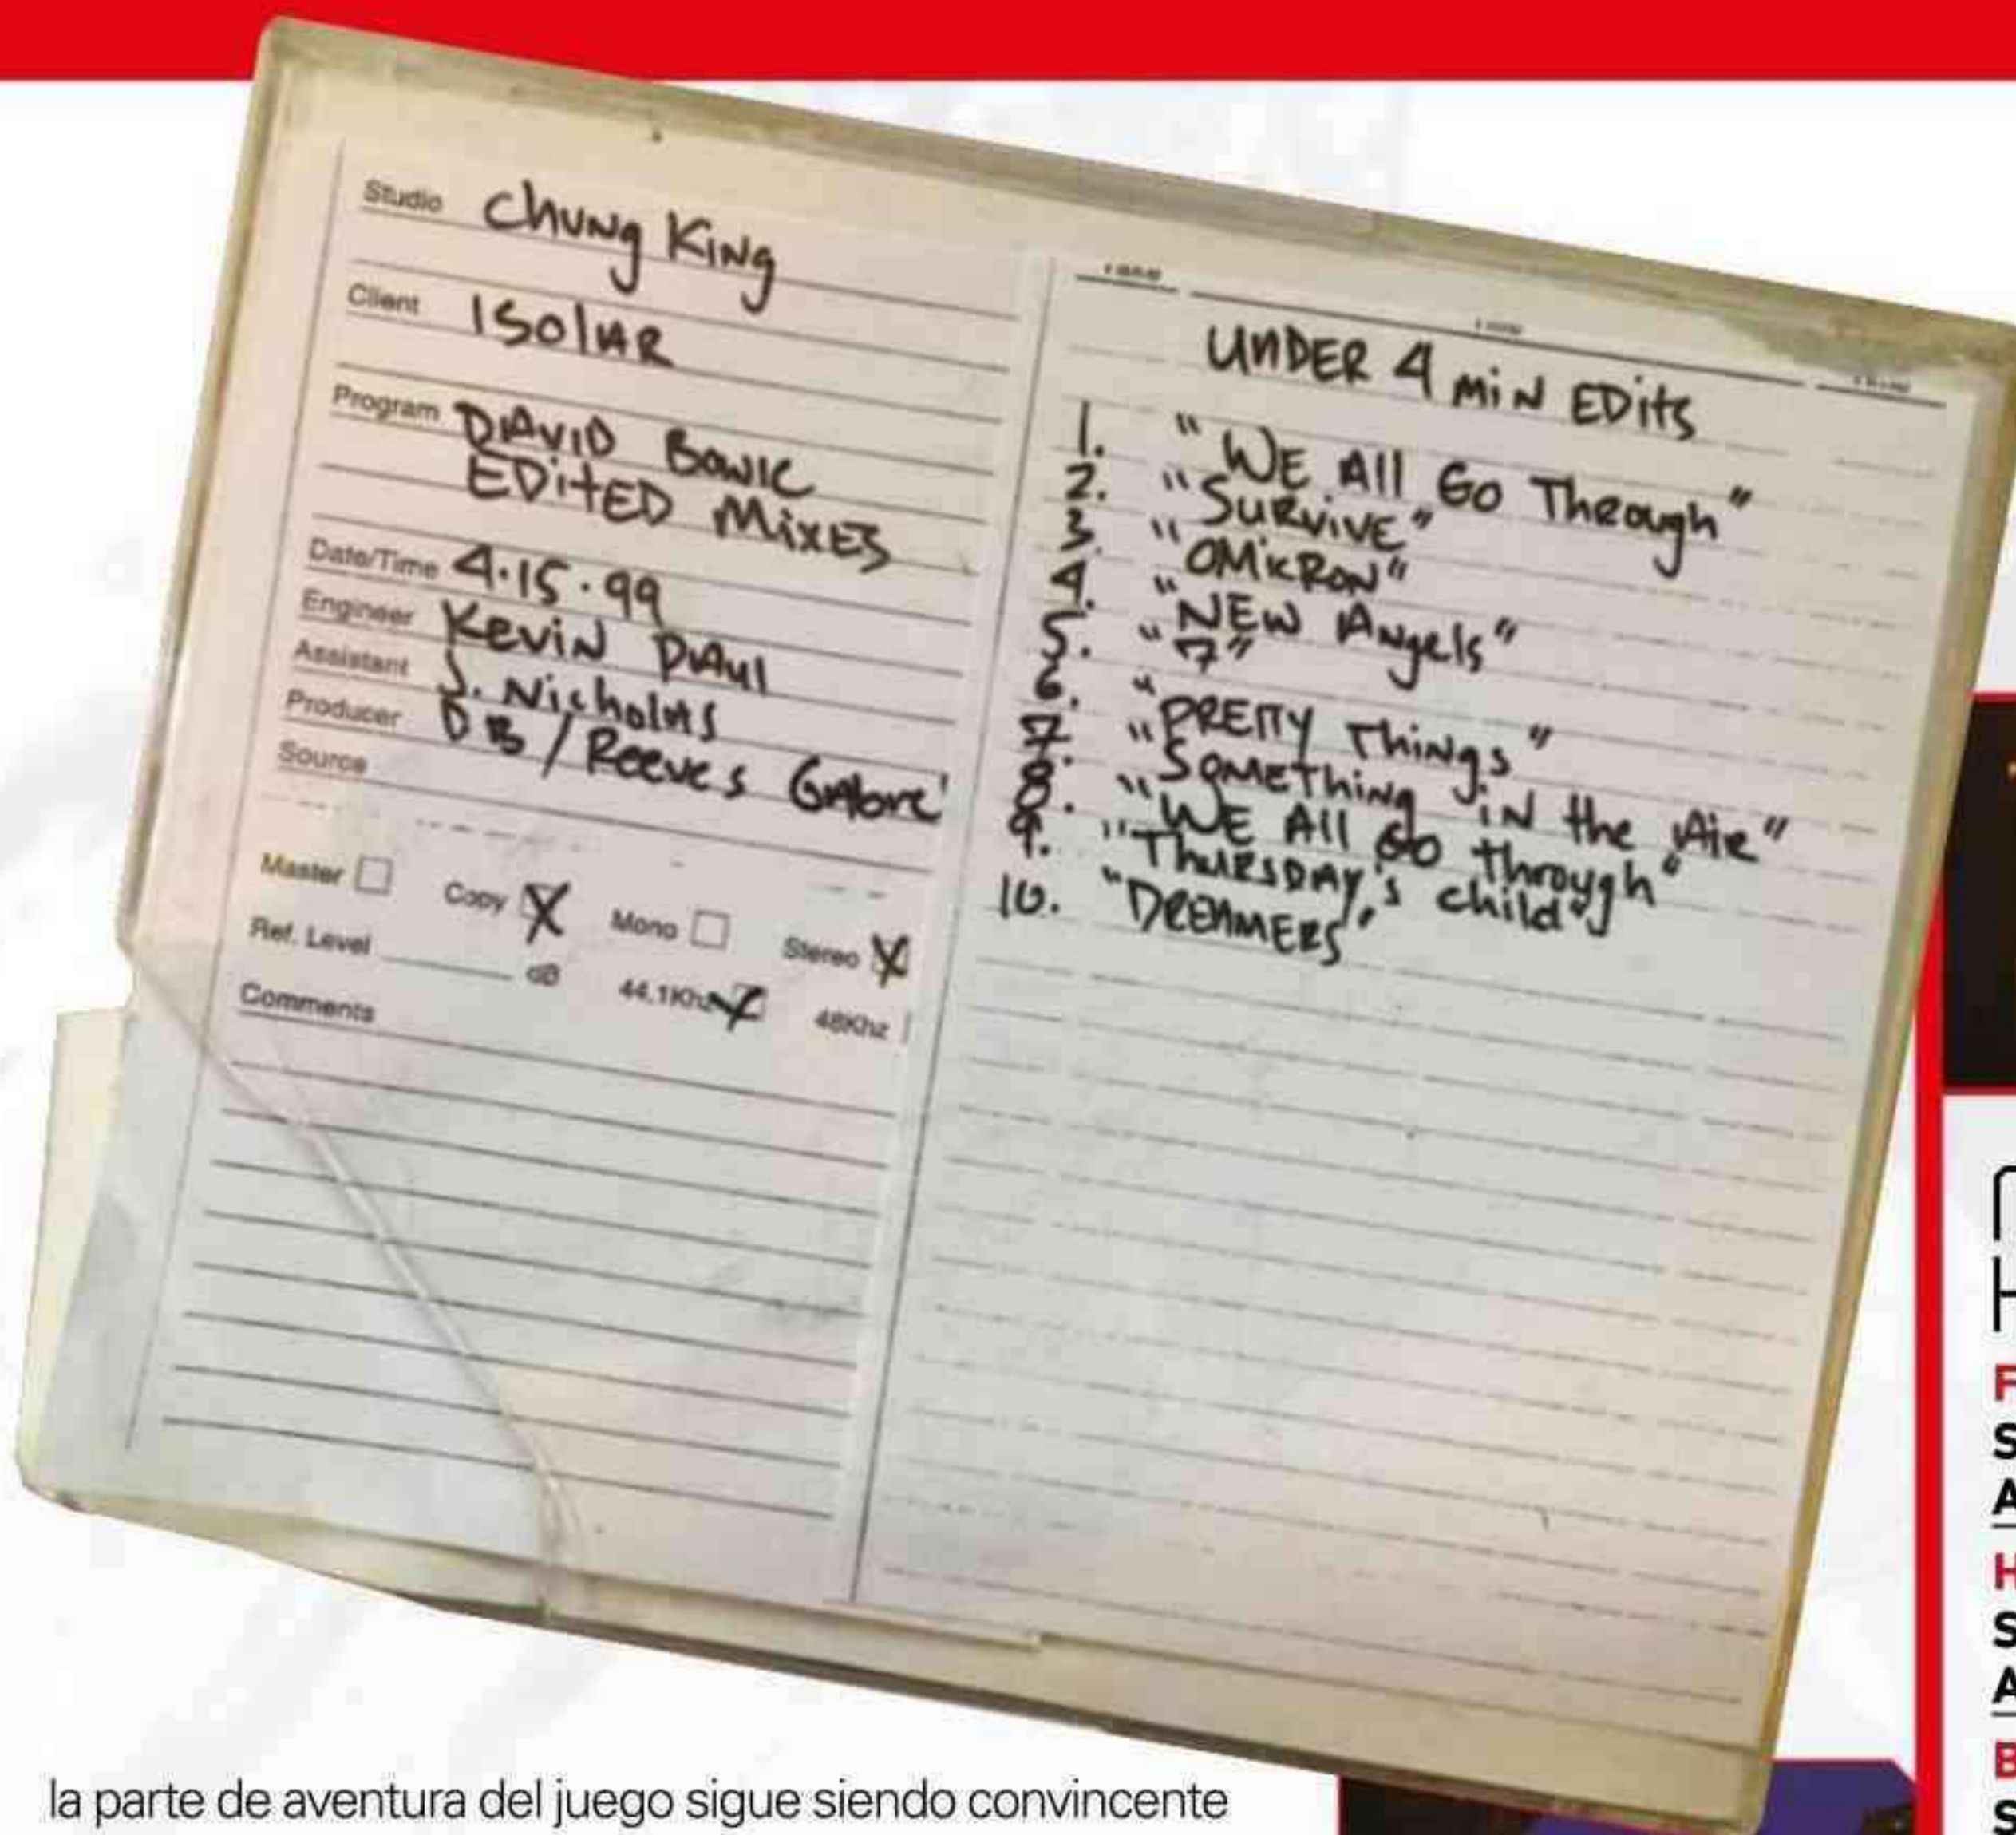 Studio Chung King
Client Isolar
Program David Bowie
Edited Mixes
Date/Time 4.15.99
Engineer Kevin Paul
Assistant S. Nicholas
Producer DB / Reeves Gabrels
Source
Master Copy X Mono Stereo X
Ref. Level dB 44.1Khz X 48Khz
Comments
UNDER 4 MiN EDitS
1. "WE All Go Through"
2. "SURVIVE"
3. "OMIKRON"
4. "NEW Angels"
5. "7"
6. "PRETTY Things"
7. "SOMEThing iN the Air"
8. "WE All Go through"
9. "ThURSDAY's child"
10. "DREAMERS"
la parte de aventura del juego sigue siendo convincente
F
S
A
H
S
A
B
S